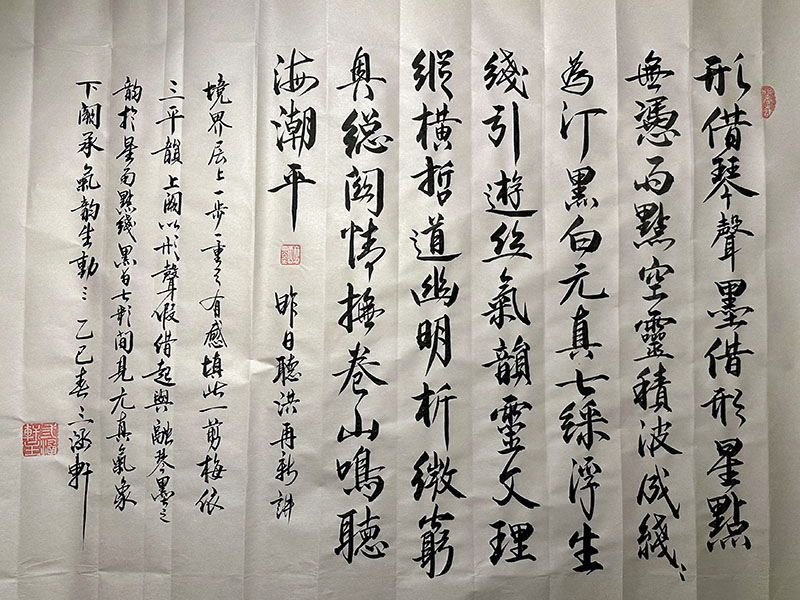 形借琴聲墨借形星點
無憑雨點空靈積波成綫〻
為汀黑白元真七綵浮生
綫引遊丝氣韻靈文理
縱横哲道幽明析微窮
奥總関情撫卷山鳴聽
海潮平 昨日聽洪再新講
境界层上一步一重天有感填此一剪梅依
三平韻上闋以形聲假借起興融琴墨之
韵於星雨點綫黑白七彩間見元真氣象
下闋承氣韵生動〻乙巳春三海軒